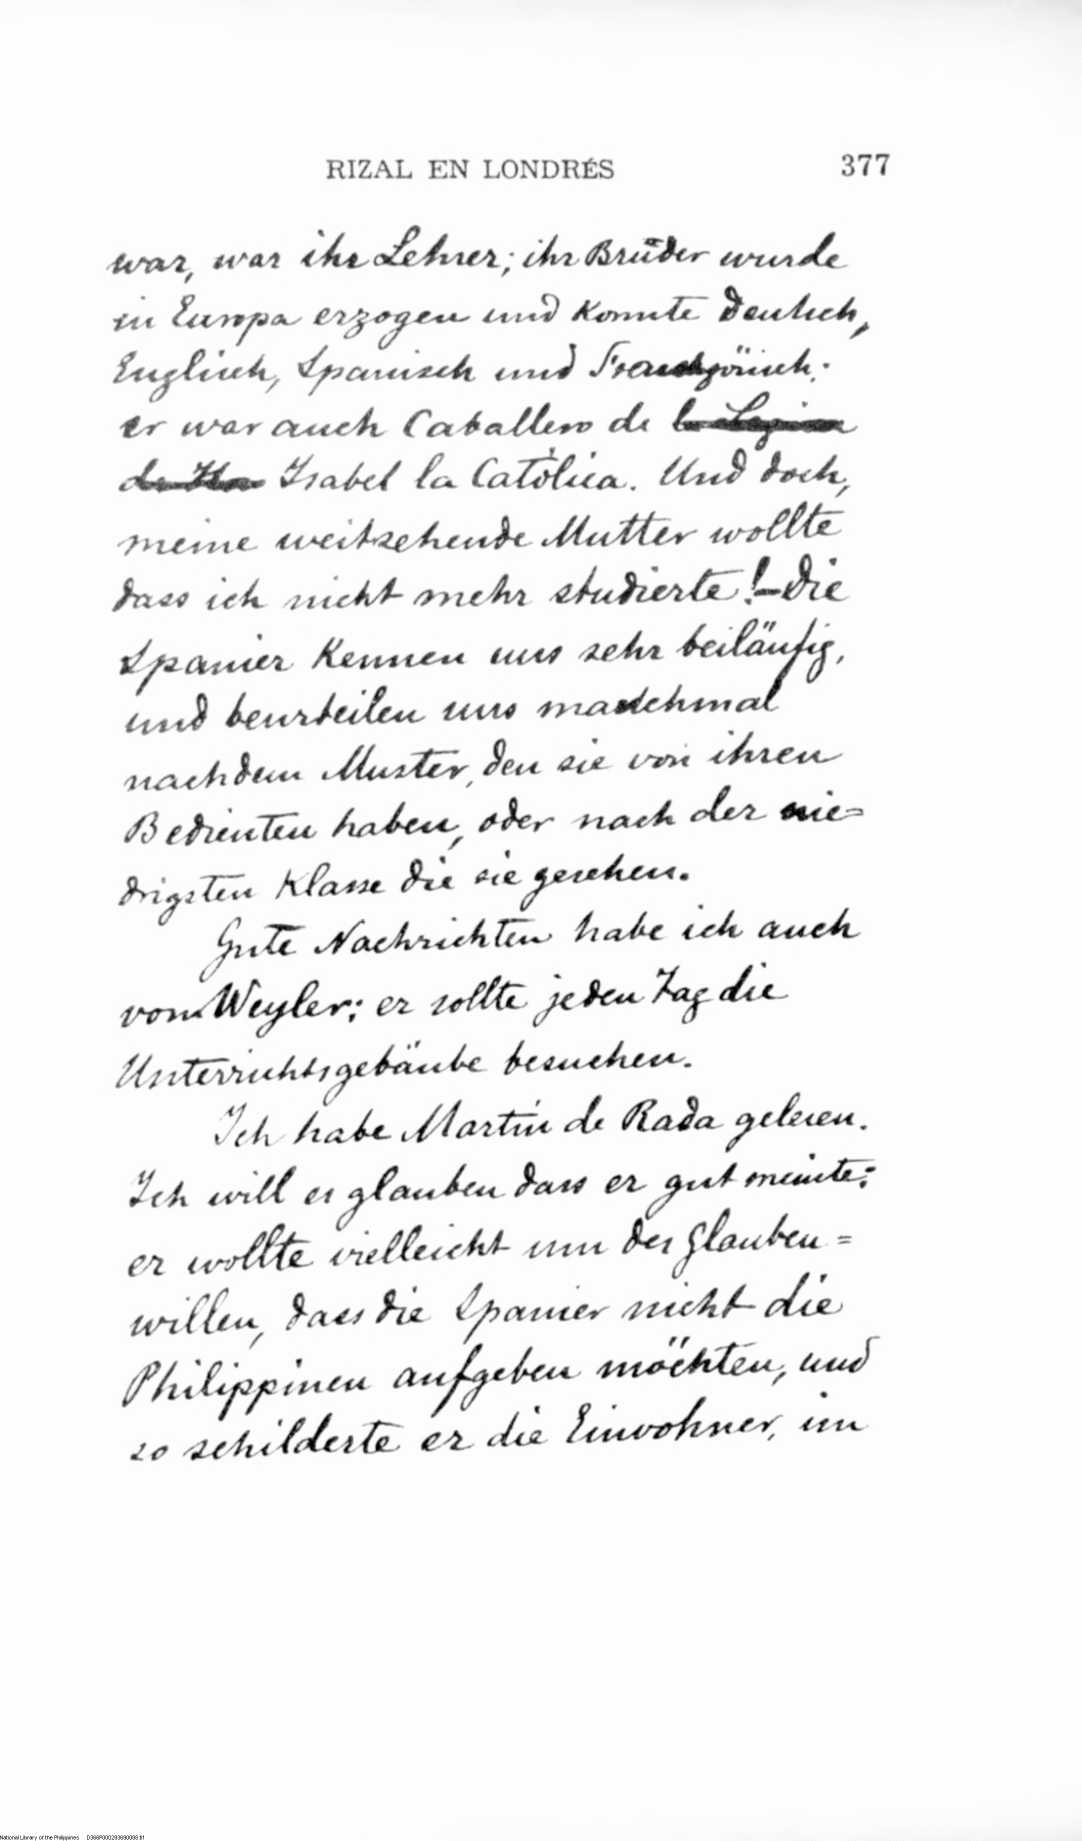 RIZAL EN LONDRÉS 377
war, war ihr Lehrer; ihr Brüder wurde
in Europa erzogen und konnte Deutsch,
Englisch, Spanisch und Französisch:
er war auch Caballero de
Isabel la Católica. Und doch,
meine weitsehende Mutter wollte
dass ich nicht mehr studierte!—Die
Spanier kennen uns sehr beiläufig,
und beurteilen uns manchmal
nachdem Muster, den sie von ihren
Bedienten haben, oder nach der nie=
drigsten Klasse die sie gesehen.
Gute Nachrichten habe ich auch
vom Weyler: er sollte jeden Tag die
Unterrichtsgebäube besuchen.
Ich habe Martín de Rada gelesen.
Ich will es glauben dass er gut meinte:
er wollte vielleicht um des Glauben=
willen, dass die Spanier nicht die
Philippinen aufgeben möchten, und
so schilderte er die Einwohner, im
National Library of the Philippines